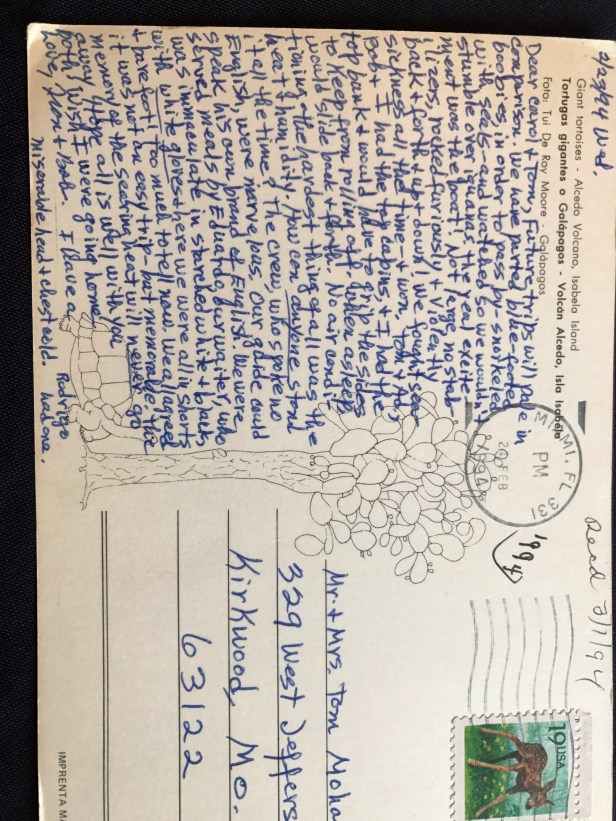 2/23/94 Wed.
Giant tortoises - Alcedo Volcano, Isabela Island
Tortugas gigantes o Galápagos - Volcán Alcedo, Isla Isabela
Foto: Tui De Roy Moore - Galápagos
Dear Carol & Tom, Future trips will pale in
comparison. We have parted blue-footed
boobies in order to pass by, snorkeled
with seals - and watched so we wouldn't
stumble over iguanas. The real excite-
ment was the boat! Not large, no stab-
ilizers, rocked furiously & violently
back & forth & up & down, we fought sea-
sickness all the time - & won. Tom & Al,
Bob & I had the top cabins & I had the
top bunk & would have to grip the sides
to keep from rolling off. When asleep
would slide back & forth. No air condi-
tioning - the hardest thing of all was the
heat & humidity. How can anyone stand
it all the time? The crew, who spoke no
English, were marvelous. Our guide could
speak his own brand of English. We were
served meals by Eduardo, our waiter, who
was immaculate in starched white & black,
with white gloves & here we were all in shorts
& barefoot! Too much to tell now. We all agreed
it was not an easy trip - but memorable. The
memory of the searing heat will never go
away. Hope all is well with you
both. Wish I were going home.
Love, & Bob. I have a
miserable head & chest cold.
MIAMI, FL 331
PM
FEB
1994
1994
Recd 3/1/94
19USA
Mr. & Mrs. Tom Moha
329 West Jeffers
Kirkwood, Mo.
63122
IMPRENTA MA